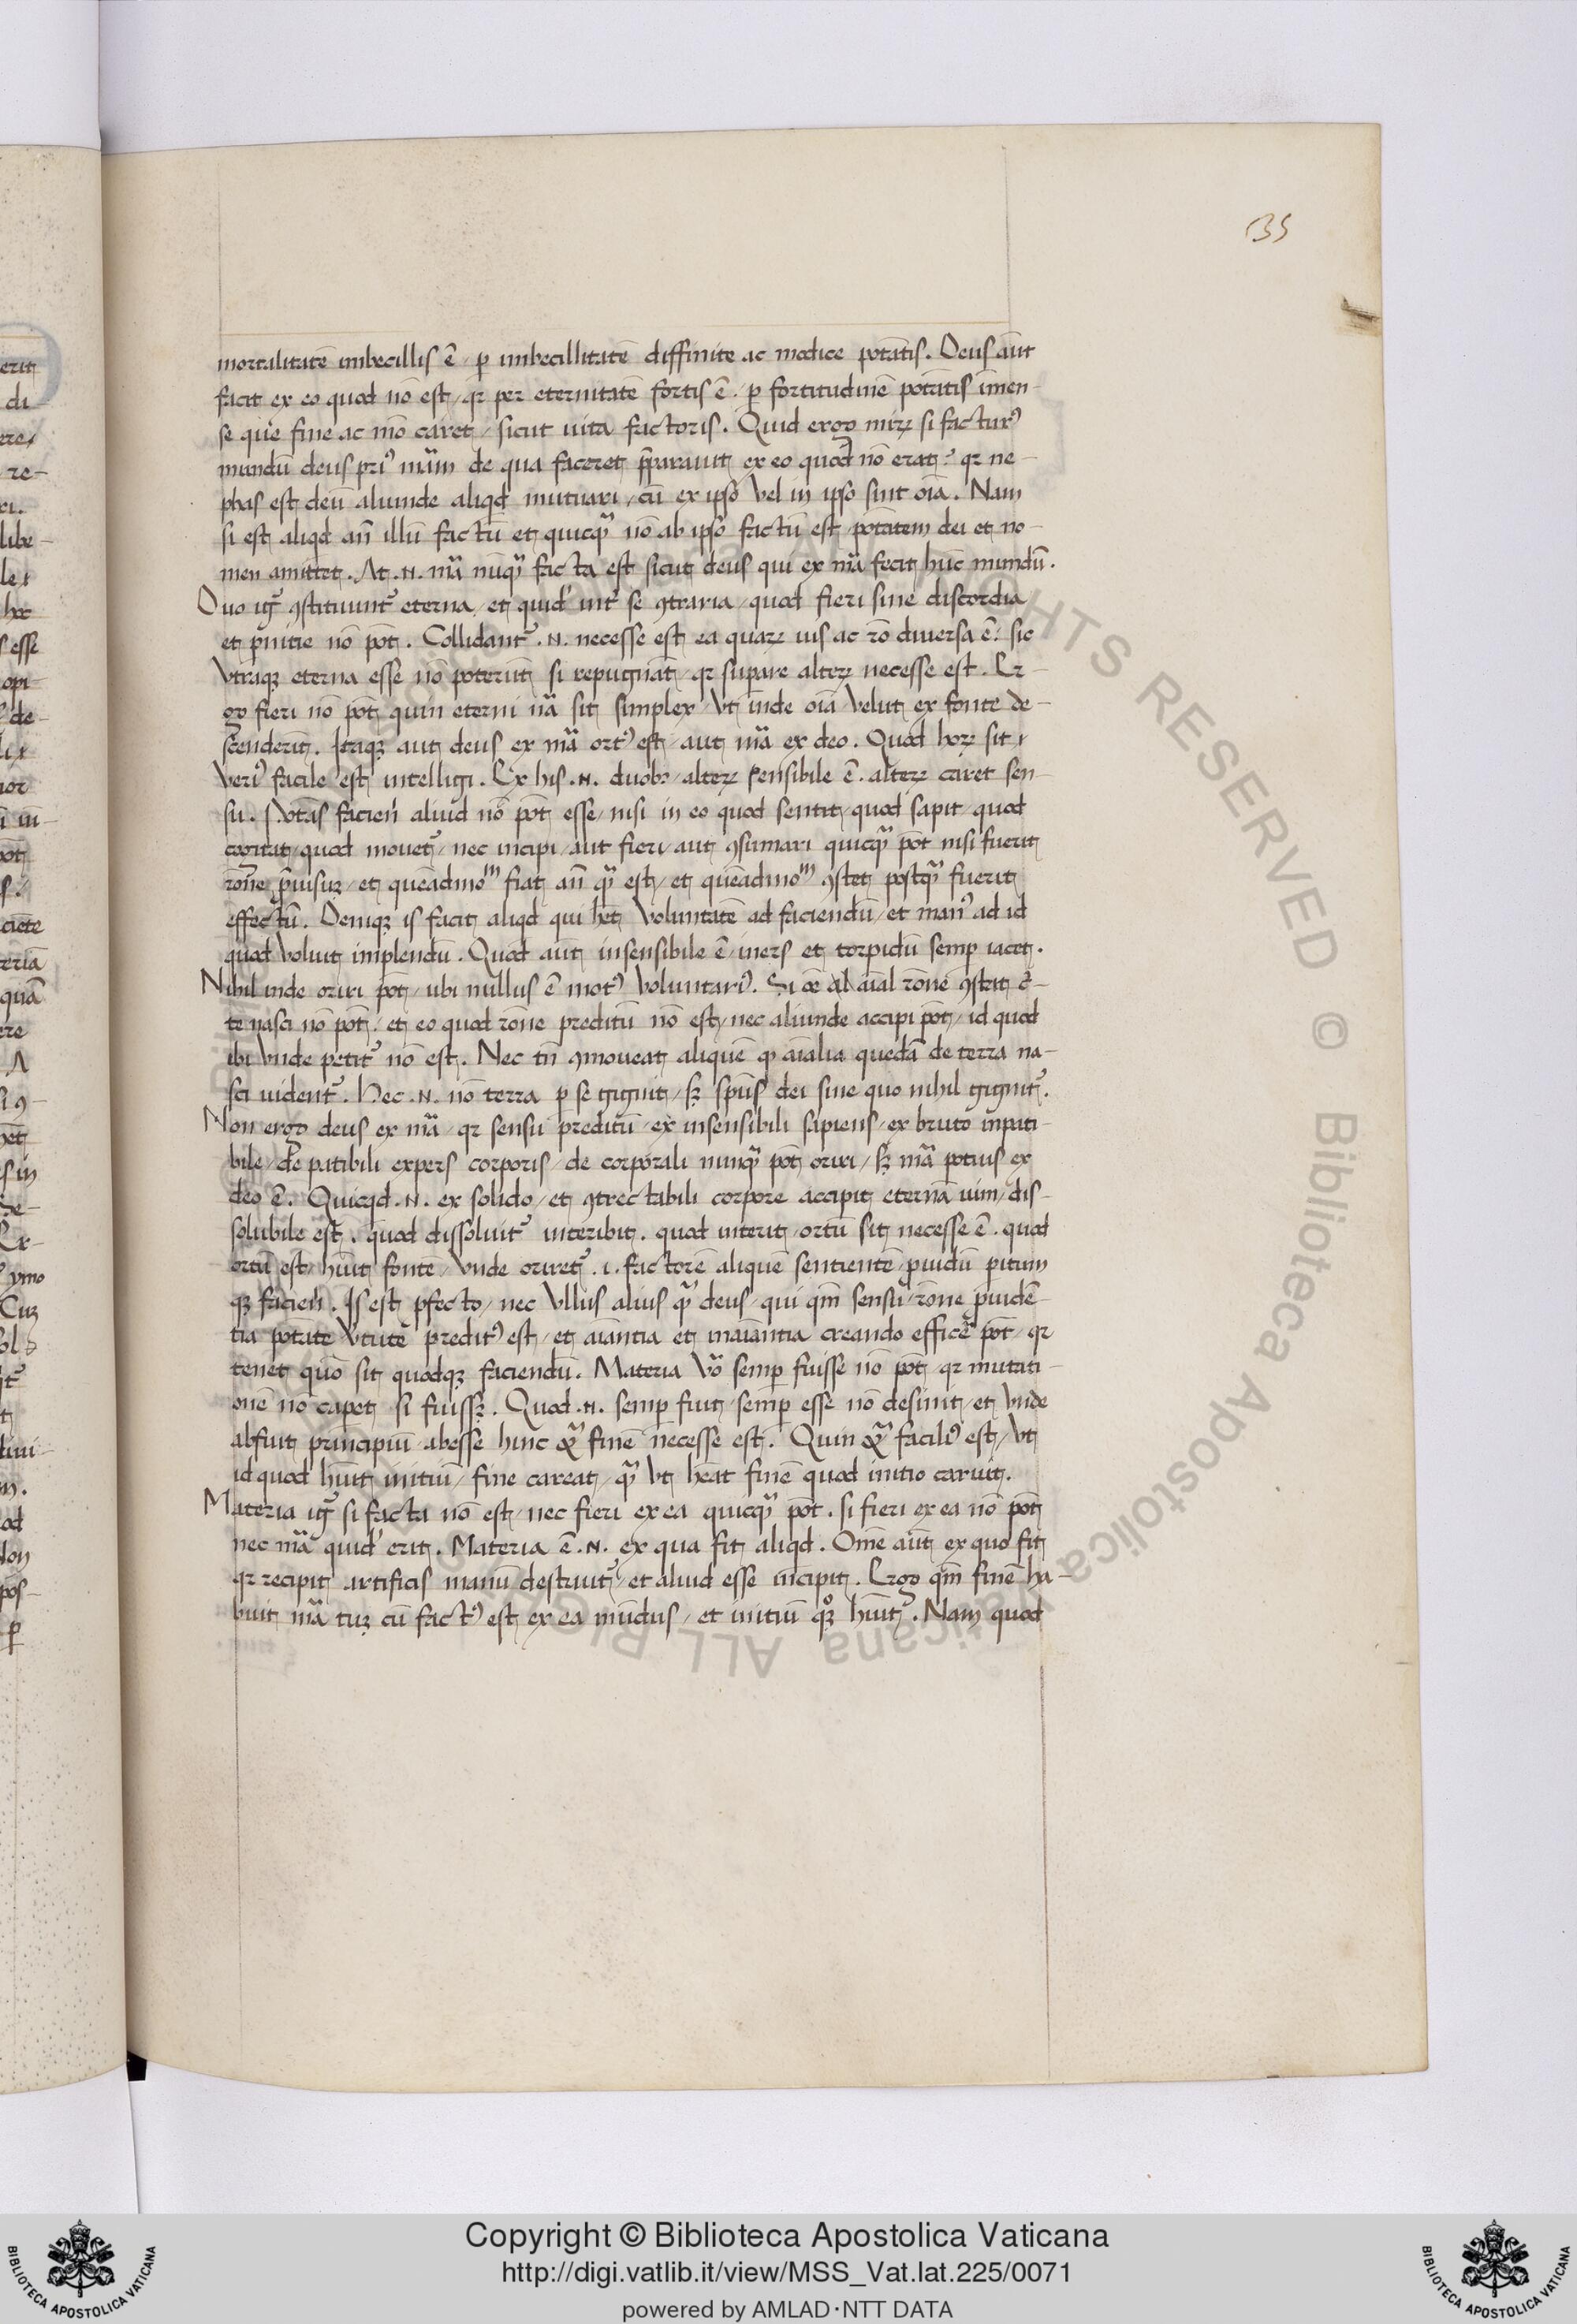 135
mortalitatē imbecillis ē / p̱ imbecillitatē diffinite ac modice potātis. Deus aūt
facit ex eo quod nō est / qr per eternitatē fortis ē. p̱ fortitudinē potātis īmen-
se que fine ac mō caret / sicut uita factoris. Quid ergo mirꝝ si facturꝰ
mundū deus priꝰ mām de qua faceret p̄parauit ex eo quod nō erat? qr ne-
phas est deū aliunde aliqd mutuari / cū ex ipso vel in ipso sint oīa. Nam
si est aliqd añ illū factū et quicqͣ nō ab ipso factū est potātem dei et no-
men amittet. At .N. mā nūqͣ facta est sicut deus qui ex mā fecit hūc mundū.
Duo igͥ ꝯstituunt᷑ eterna / et quid' int᷑ se ꝯtraria / quod fieri sine discordia
et p̄nitie nō pōt. Collidant᷑ .N. necesse est ea quaꝝ uis ac rō diuersa ē. sic
vtraqꝫ eterna esse nō poterūt si repugnāt / qr supare alterꝝ necesse est. Er-
go fieri nō pōt quin eterni nā sit simplex / vt inde oīa velut ex fonte de-
scenderīt. Itaqꝫ aut deus ex mā ortꝰ est / aut mā ex deo. Quod hoꝝ sit
veriꝰ facile est intelligi. Ex his .N. duobꝫ / alterꝝ sensibile ē. alterꝝ caret sen-
su. Potās facien̄ aliud nō pōt esse / nisi in eo quod sentit / quod sapit / quod
cogitat / quod mouet᷑ / nec incipi / aut fieri / aut ꝯsumari quicqͣ pōt nisi fuerit
rōne p̄uisuꝫ / et queādmoᵐ fiat añ qͣ est / et queādmoᵐ ꝯstet postqͣ fuerit
effectū. Deniqꝫ is facit aliqd qui hēt voluntatē ad faciendū / et manꝰ ad id
quod voluit implendū. Quod aūt insensibile ē / iners et torpidū semp̱ iacet.
Nihil inde oriri pōt / ubi nullus ē motꝰ voluntariꝰ. Si oē aīal rōne ꝯstat c̄-
te nasci nō pōt / et eo quod rōne preditū nō est / nec aliunde accipi pōt / id quod
ibi vnde petit᷑ nō est. Nec tn̄ ꝯmoueat aliquē qꝫ aīalia quedā de terra na-
sci uident᷑. Hec .N. nō terra p̱ se gignit / sꝫ sp̄us dei sine quo nihil gignit᷑.
Non ergo deus ex mā / qr sensu preditū / ex insensibili sapiens / ex bruto inpati-
bile / de patibili expers corporis / de corporali nunqͣ pōt oriri / sꝫ mā potius ex
deo ē. Quicqd .N. ex solido / et ꝯtrectabili corpore accipit eternā uim / dis-
solubile est. quod dissoluit᷑ interibit. quod interit / ortū sit necesse ē. quod
ortū est hūit fontē / vnde oriret᷑ .i. factorē aliquē sentientē p̱uidū p̱itum
qꝫ facien̄. Is est p̱fecto / nec vllus alius qͣ deus / qui qm̄ sensu / rōne p̱uidē-
tia potāte v̄tutē preditꝰ est / et aīantia et inaīantia creando efficē pōt / qr
tenet quō sit quodqꝫ faciendū. Materia v̄o semp̱ fuisse nō pōt / qr mutati-
onē nō capet / si fuissꝫ. Quod .N. semp̱ fuit / semp̱ esse nō desinit / et vnde
abfuit principiū / abesse hinc qͣ finē necesse est. Quin qͣ faciliꝰ est / vt
id quod hūit initiū / fine careat / qͣ vt heāt finē quod initio caruit.
Materia igͥ si facta nō est / nec fieri ex ea quicqͣ pōt. si fieri ex ea nō pōt
nec mā quid' erit. Materia ē .N. ex qua fit aliqd. Omē aūt ex quo fit
qr recipit artificis manū / destruit᷑ / et aliud esse incipit. Ergo qm̄ finē ha-
buit mā tuꝫ cū factꝰ est ex ea mūdus / et initiū qꝫ hūit. Nam quod
BIBLIOTECA APOSTOLICA VATICANA
Copyright © Biblioteca Apostolica Vaticana
http://digi.vatlib.it/view/MSS_Vat.lat.225/0071
powered by AMLAD·NTT DATA
BIBLIOTECA APOSTOLICA VATICANA